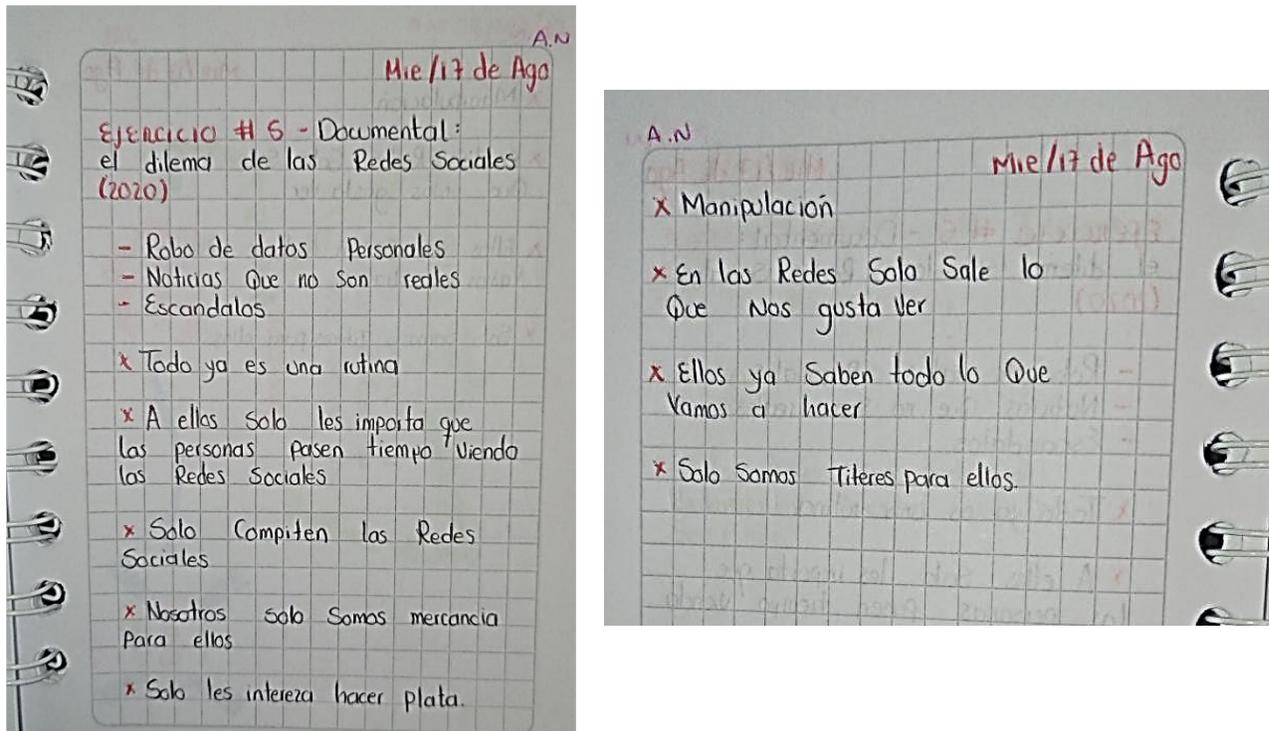 A.N
Mie/17 de Ago
Ejercicio # 5 - Documental:
el dilema de las Redes Sociales
(2020)
- Robo de datos Personales
- Noticias Que no Son reales
- Escandalos
x Todo ya es una rutina
x A ellos Solo les importa que
las personas pasen tiempo Viendo
las Redes Sociales
x Solo Compiten las Redes
Sociales
x Nosotros Solo Somos mercancia
Para ellos
x Solo les intereza hacer plata.
A.N
Mie/17 de Ago
x Manipulación
x En las Redes Solo Sale lo
Que Nos gusta Ver
x Ellos ya Saben todo lo Que
Vamos a hacer
x Solo Somos Titeres para ellos.